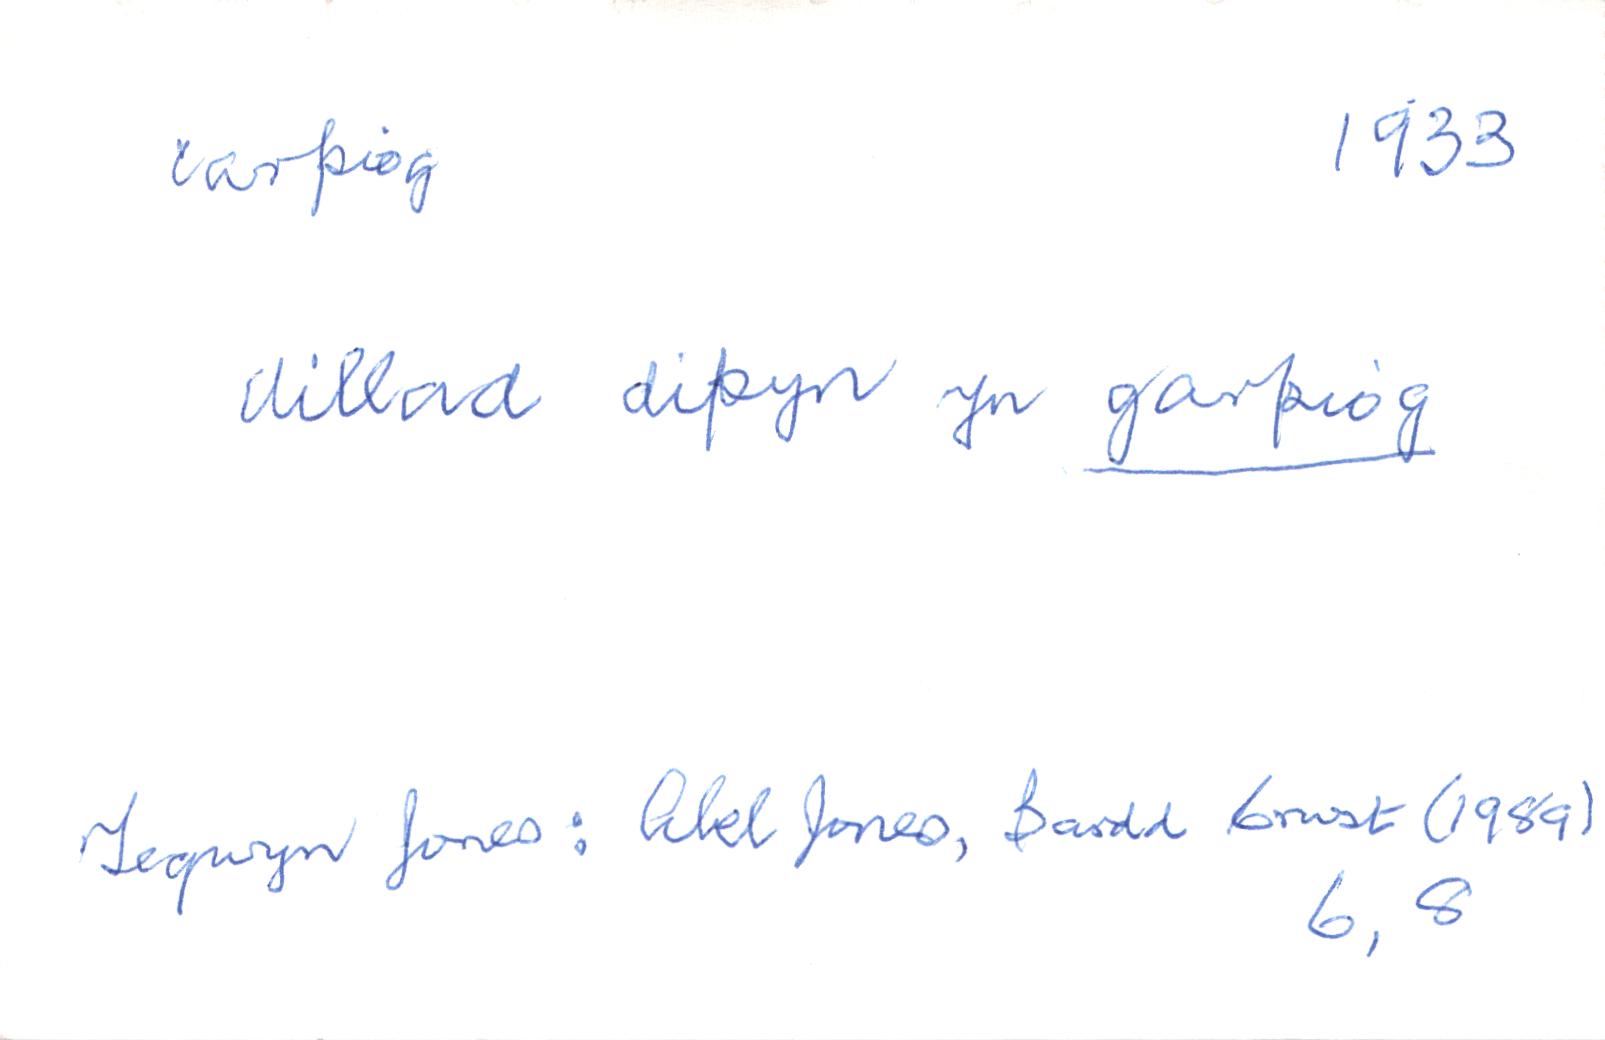 carpiog 1933
dillad dipyn yn garpiog
Tegwyn Jones: Abel Jones, Bardd Crwst (1989)
6, 8